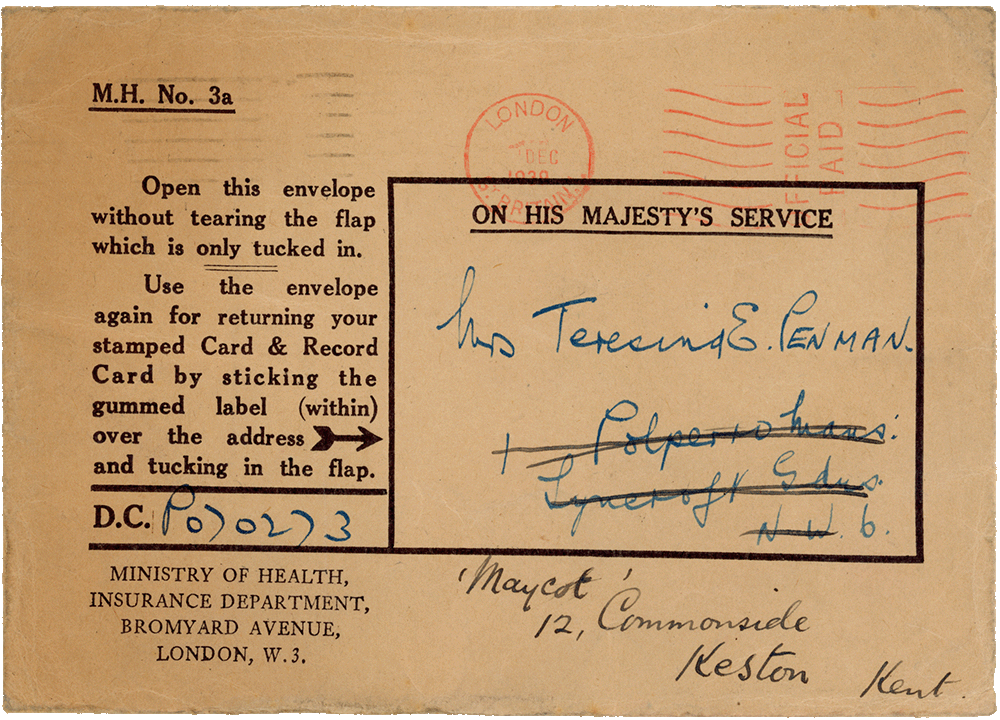 M.H. No. 3a
LONDON
DEC
OFFICIAL
PAID
Open this envelope
without tearing the flap
which is only tucked in.
Use the envelope
again for returning your
stamped Card & Record
Card by sticking the
gummed label (within)
over the address
and tucking in the flap.
D.C. P070273
MINISTRY OF HEALTH,
INSURANCE DEPARTMENT,
BROMYARD AVENUE,
LONDON, W.3.
ON HIS MAJESTY'S SERVICE
Mrs Teresina E. PENMAN.
1 Polperro Mans:
Lyncroft Gdns.
N.W. 6.
'Maycot'
12, Commonside
Keston
Kent.